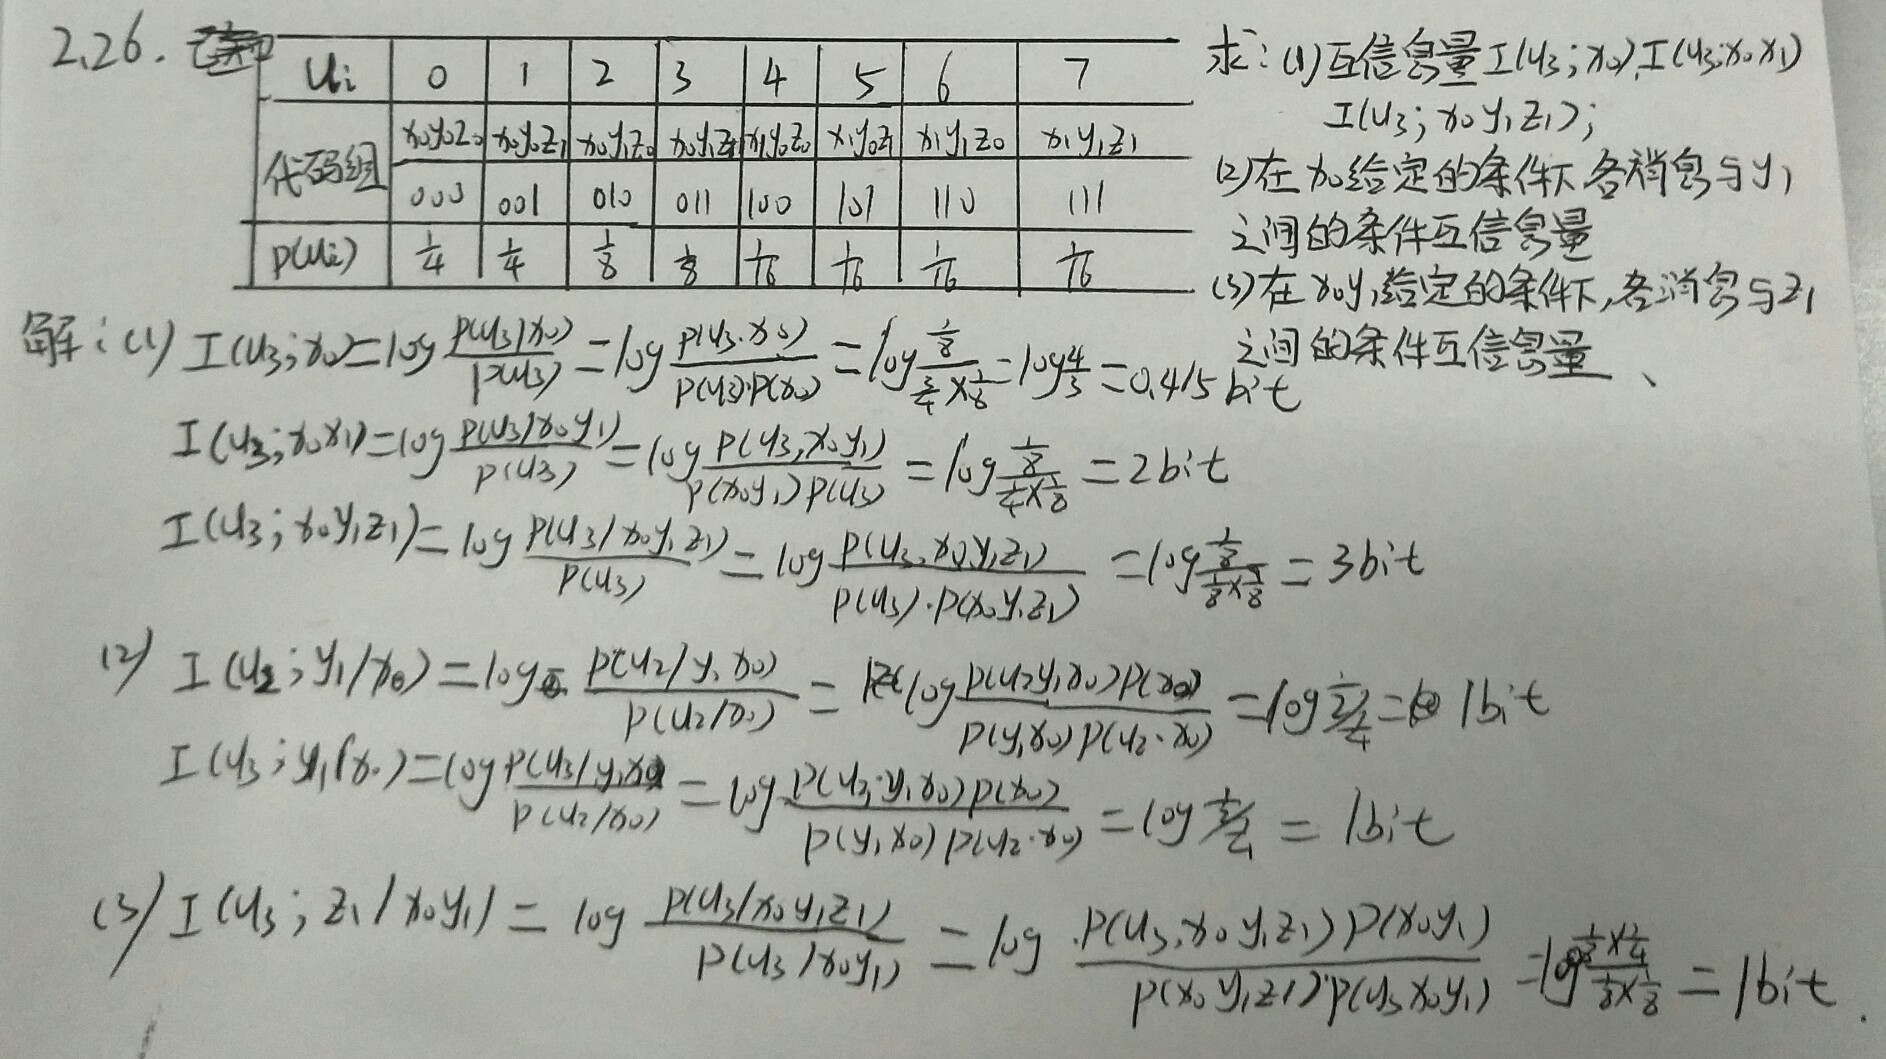 2.26.
Ui 0 1 2 3 4 5 6 7
代码组 x₀y₀z₀ x₀y₀z₁ x₀y₁z₀ x₀y₁z₁ x₁y₀z₀ x₁y₀z₁ x₁y₁z₀ x₁y₁z₁
000 001 010 011 100 101 110 111
P(Ui) 1/4 1/4 1/8 1/8 1/16 1/16 1/16 1/16
求:(1)互信息量I(u₃;x₀),I(u₃;x₀x₁)
I(u₃;x₀y₁z₁);
(2)在x₀给定的条件下,各消息与y₁
之间的条件互信息量
(3)在x₀y₁给定的条件下,各消息与z₁
之间的条件互信息量、
解:(1) I(u₃;x₀)=log P(u₃/x₀)/P(u₃) = log P(u₃·x₀)/P(u₃)·P(x₀) = log (1/8)/(3/4×1/8) = log 4/3 = 0.415 bit
I(u₃;x₀x₁)=log P(u₃/x₀y₁)/P(u₃) = log P(u₃,x₀y₁)/P(x₀y₁)P(u₃) = log (1/8)/(1/4×1/8) = 2bit
I(u₃;x₀y₁z₁)=log P(u₃/x₀y₁z₁)/P(u₃) = log P(u₃,x₀y₁z₁)/P(u₃)·P(x₀y₁z₁) = log (1/8)/(1/8×1/8) = 3bit
(2) I(u₂;y₁/x₀)=log P(u₂/y₁x₀)/P(u₂/x₀) = log P(u₂y₁x₀)P(x₀)/P(y₁x₀)P(u₂·x₀) = log = 1bit
I(u₃;y₁/x₀)=log P(u₃/y₁x₀)/P(u₂/x₀) = log P(u₃·y₁x₀)P(x₀)/P(y₁x₀)P(u₂·x₀) = log = 1bit
(3) I(u₃;z₁/x₀y₁) = log P(u₃/x₀y₁z₁)/P(u₃/x₀y₁) = log P(u₃,x₀y₁z₁)P(x₀y₁)/P(x₀y₁z₁)·P(u₃x₀y₁) = log (1/8×1/4)/(1/8×1/8) = 1bit.